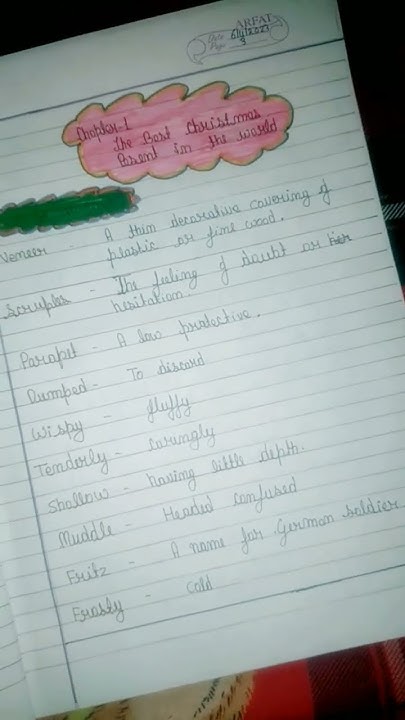 ARFAT
Date
Page 3
Chapter-1
The Best Christmas
Present in the world
Veneer - A thin decorative covering of
plastic or fine wood.
Scruples - The feeling of doubt or
hesitation.
Parapit - A low protective.
Dumped - To discard
Wispy - fluffy
Tenderly - Caringly
Shallow - having little depth.
Muddle - Headed confused
Fritz - A name for German soldier
Frosty - Cold